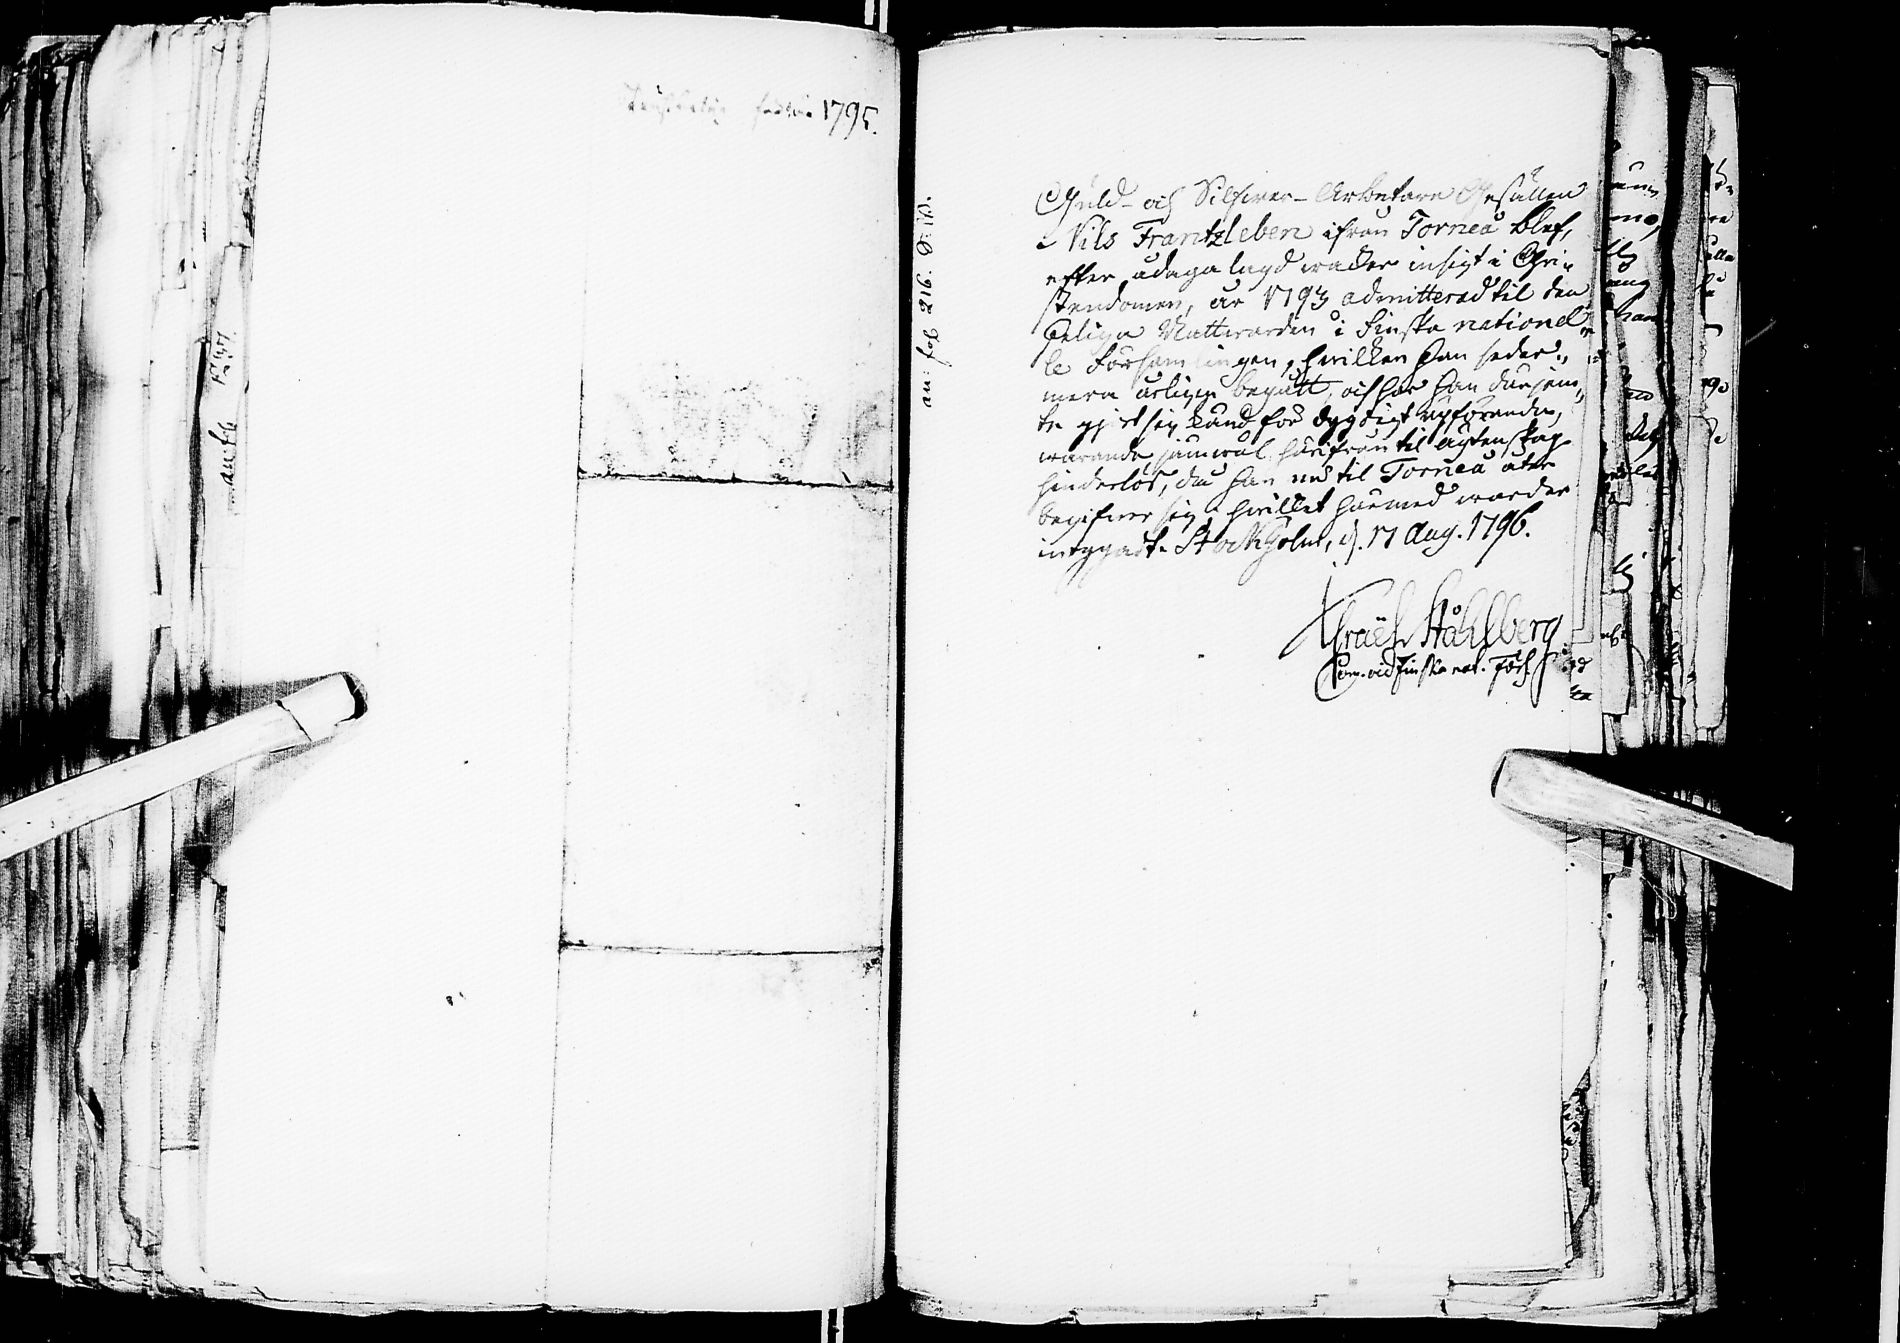 1795.
an: fol. 216.
Guld- och Silfwer-Arbetare Gesällen
Nils Frantzleben ifrån Torneå blef,
efter ådagalagd wacker insigt i Chri-
stendomen, år 1793 admitterad til den
Heliga Nattwarden i Finska nationel-
le Församlingen, hwilken han seder-
mera årligen begått, och har han därjem-
te gjort sig känd för dygdigt upförande,
warande jämwäl härifrån til ägtenskap
hinderlös, då han nu til Torneå åter
begifwer sig; hwilket härmed warder
intygadt. Stockholm, d. 17 Aug. 1796.
Israël Ståhlberg
Com. vid Finska nat. Förs.